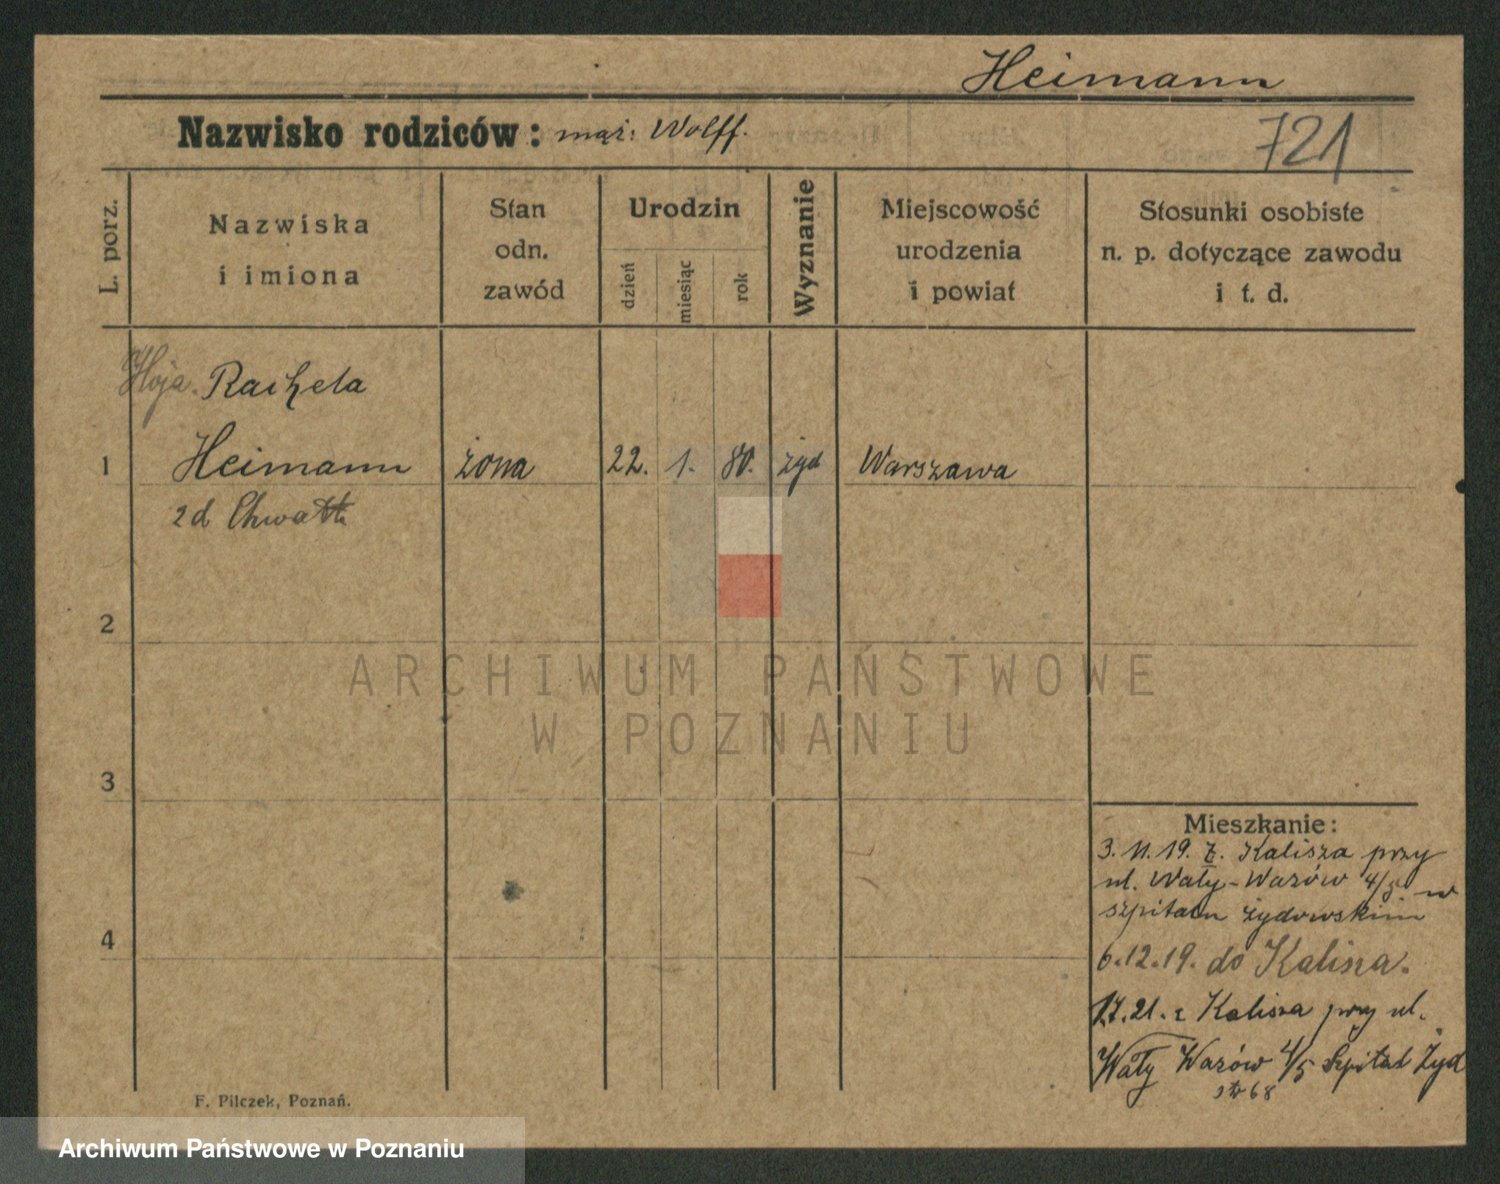 Heimann
Nazwisko rodziców: mąż: Wolff.
721
L. porz.
Nazwiska
i imiona
Stan
odn.
zawód
Urodzin
dzień
miesiąc
rok
Wyznanie
Miejscowość
urodzenia
i powiat
Stosunki osobiste
n. p. dotyczące zawodu
i t. d.
Hoja. Rachela
1 Heimann żona 22. 1. 80. żyd Warszawa
zd
2
3
4
ARCHIWUM PAŃSTWOWE
W POZNANIU
Mieszkanie:
3.11.19. z. Kalisza przy
ul. Wały-Wazów 4/5 w
szpitalu żydowskim
6.12.19. do Kalisza.
.21. z Kalisza przy ul.
Wały Wazów 4/5 Szpital Żyd
68
F. Pilczek, Poznań.
Archiwum Państwowe w Poznaniu